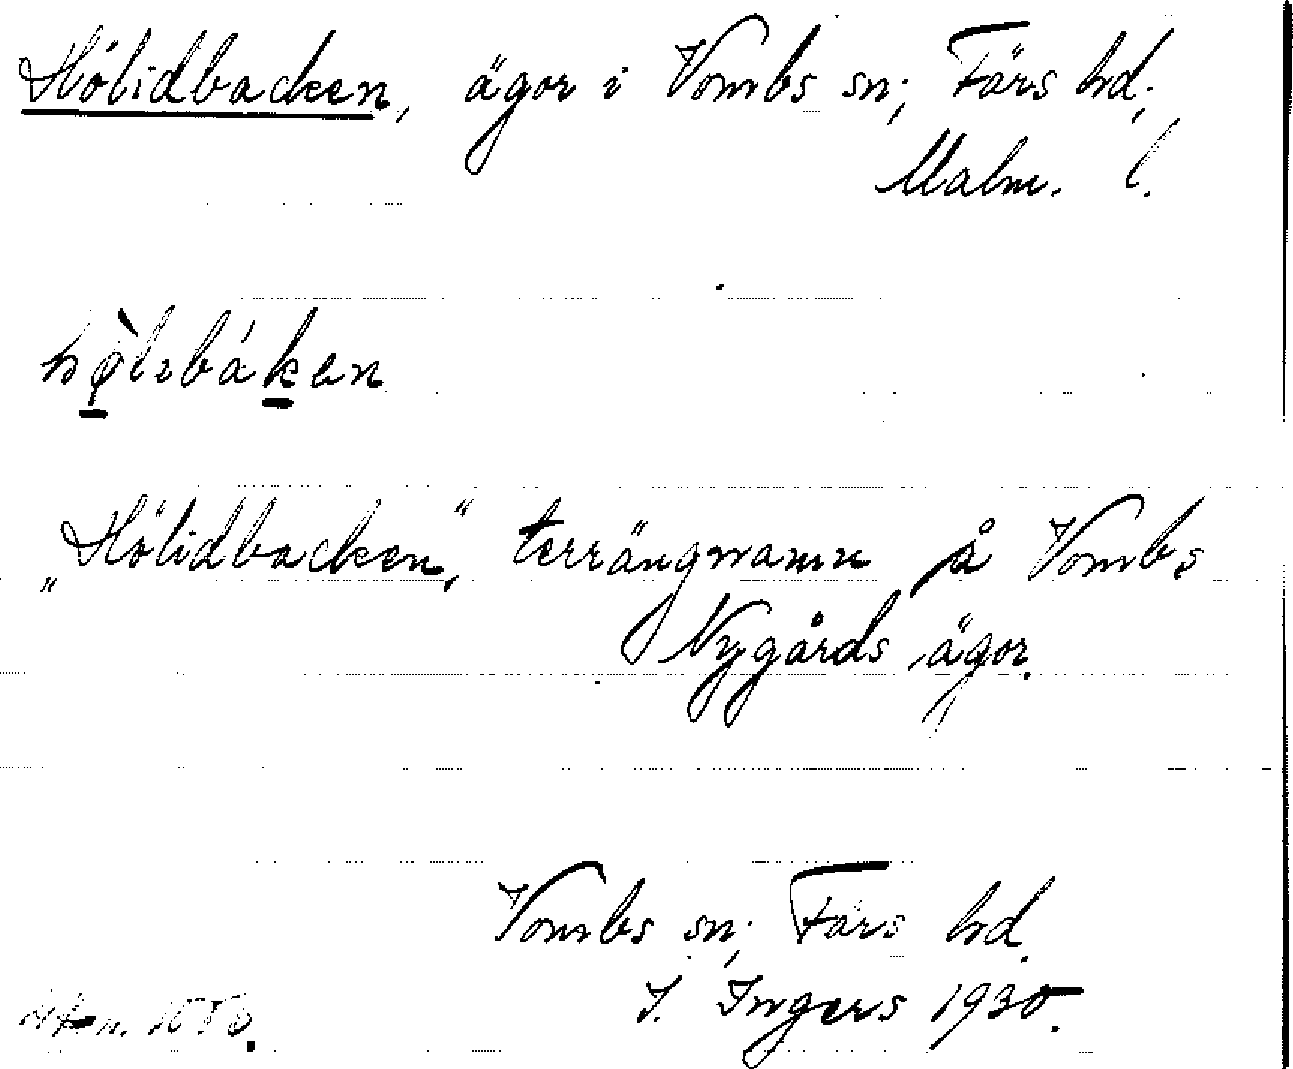 Hölidbacken, ägor i Vombs sn; Färs hd;
Malm. l.
hø̀lιbákɐn
„Hölidbacken," terrängnamn på Vombs
Nygårds ägor.
Vombs sn; Färs hd.
I. Ingers 1930.